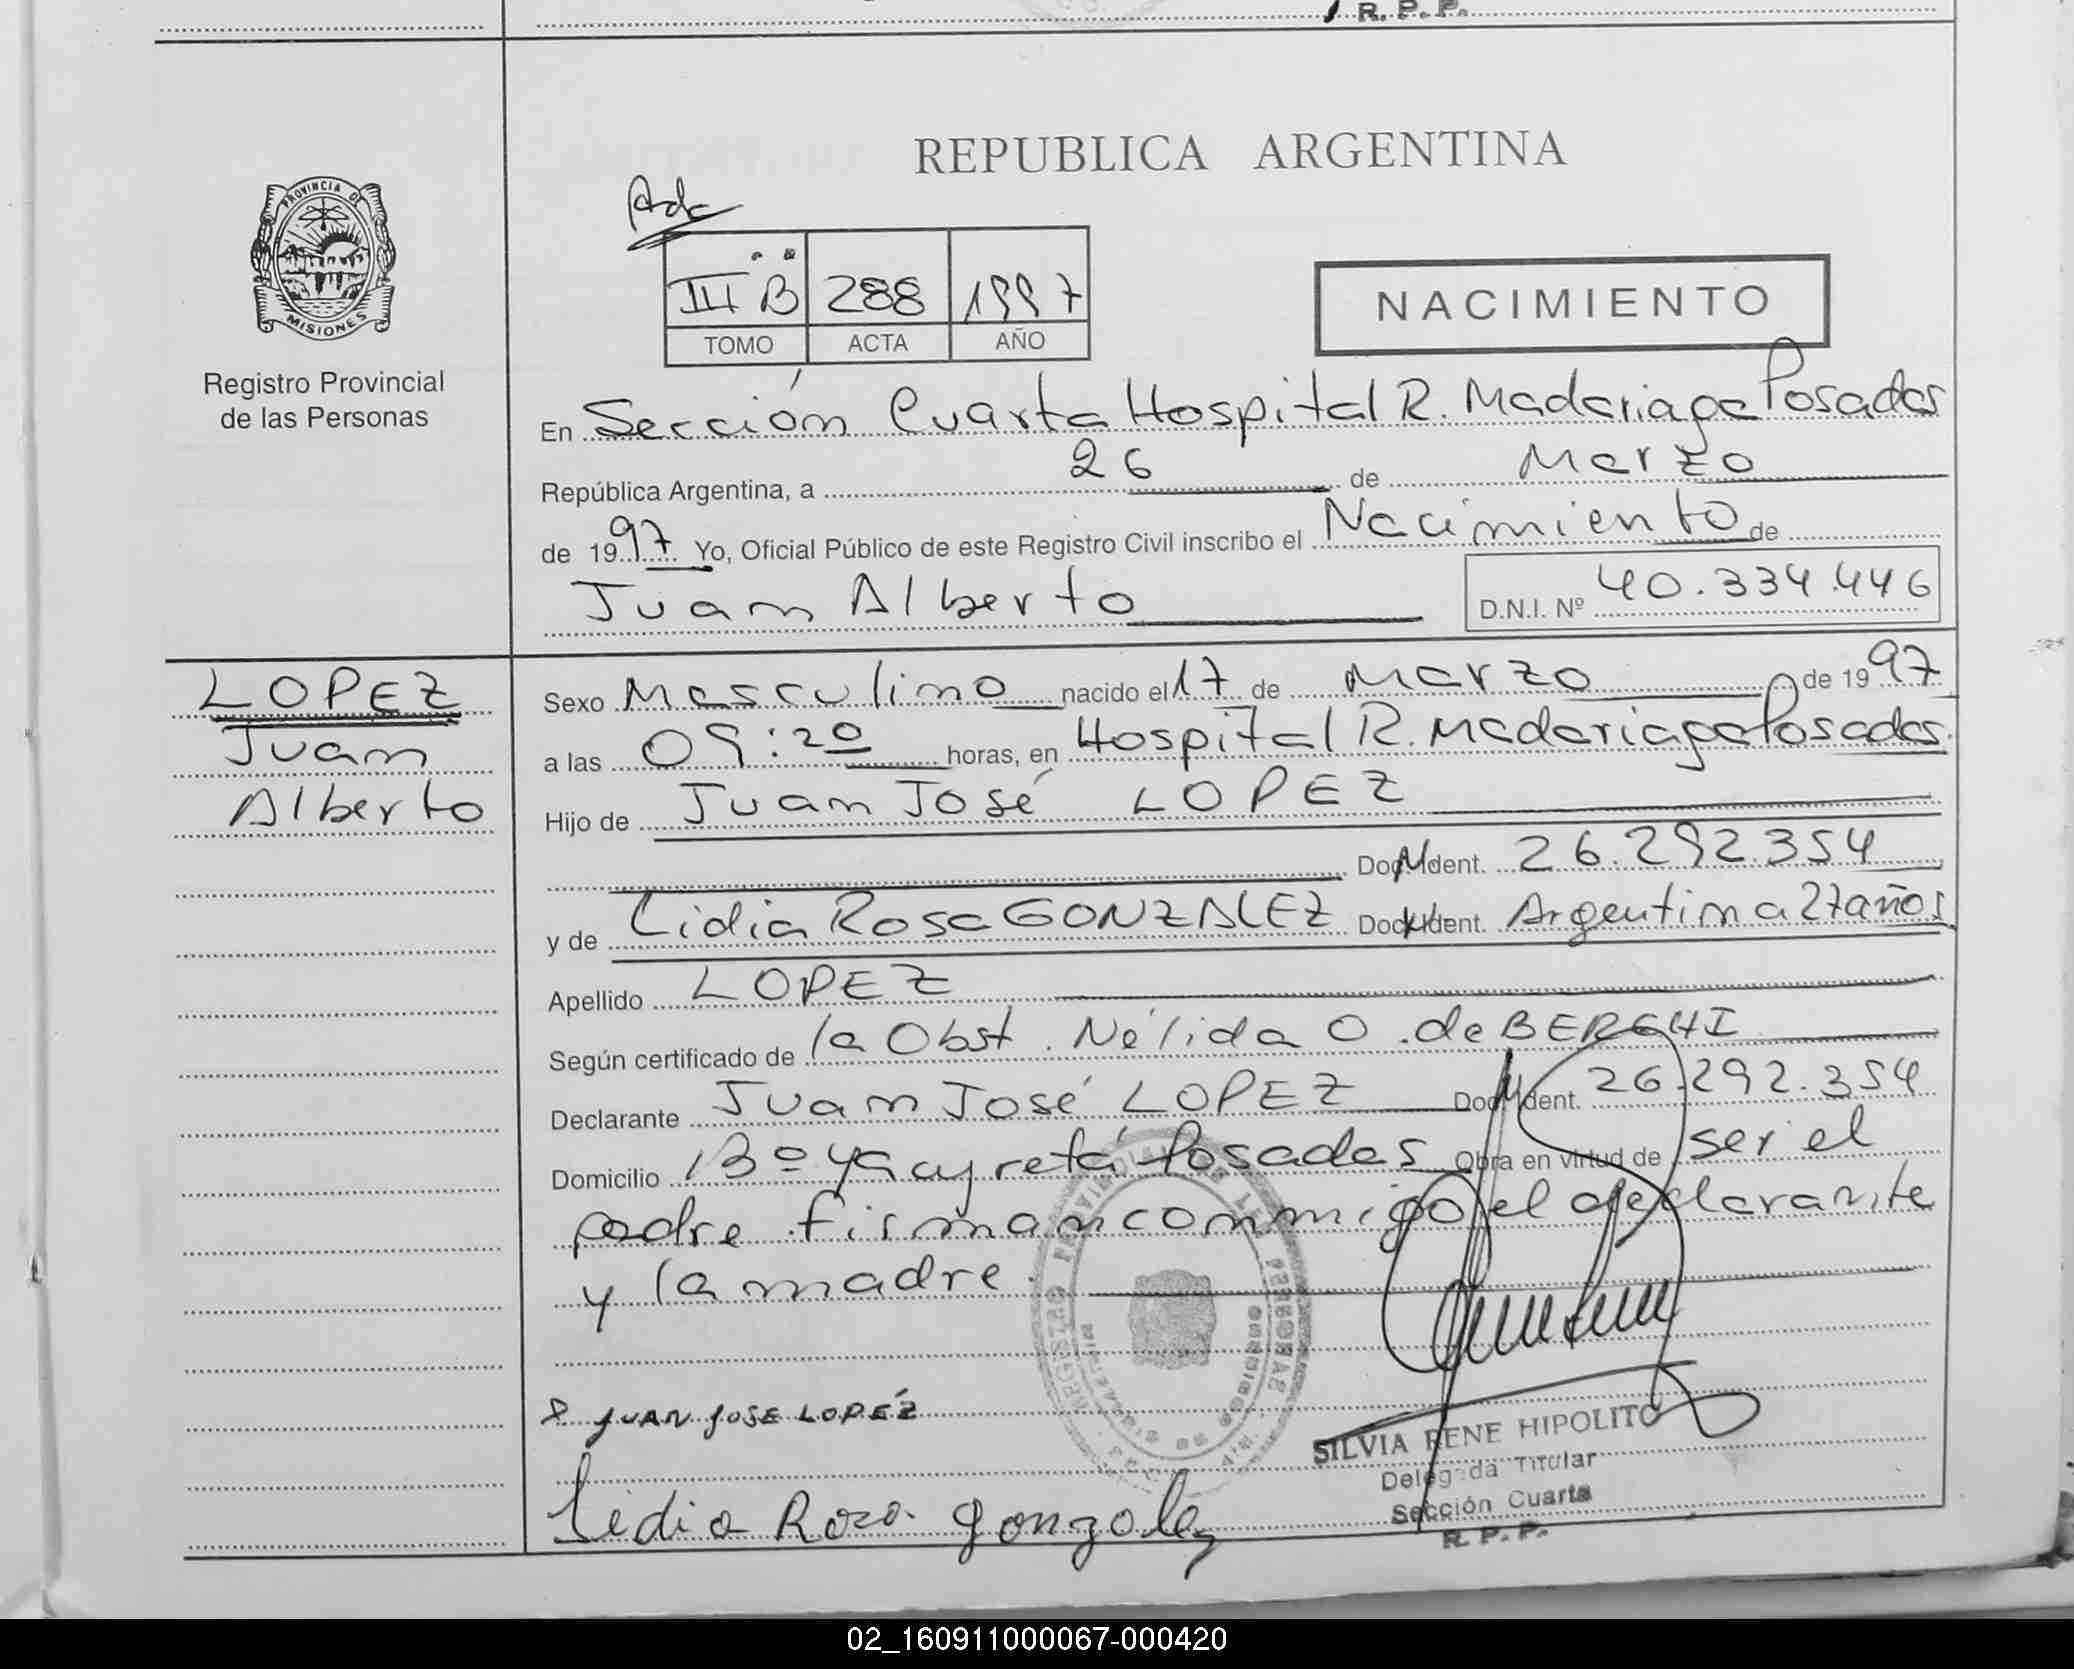 R. P. P.
REPUBLICA ARGENTINA
PROVINCIA DE
MISIONES
Registro Provincial
de las Personas
III B 288 1997
TOMO ACTA AÑO
NACIMIENTO
En Sección Cuarta Hospital R. Madariaga Posadas
República Argentina, a 26 de Marzo
de 1997 Yo, Oficial Público de este Registro Civil inscribo el Nacimiento de
Juan Alberto D.N.I. Nº 40.334.446
LOPEZ
Juan
Alberto
Sexo Masculino nacido el 17 de Marzo de 1997
a las 09:20 horas, en Hospital R. Madariaga Posadas
Hijo de Juan José LOPEZ
Doc. Ident. 26.292.354
y de Lidia Rosa GONZALEZ Doc. Ident. Argentina 27 años
Apellido LOPEZ
Según certificado de la Obst. Nélida O. de BERGHI
Declarante Juan José LOPEZ Doc. Ident. 26.292.354
Domicilio Bº Yacyretá Posadas Obra en virtud de ser el
padre. firman conmigo el declarante
y la madre.
JUAN JOSE LOPEZ
Lidia Rosa gonzalez
SILVIA RENE HIPOLITO
Delegada Titular
Sección Cuarta
R. P. P.
02_160911000067-000420